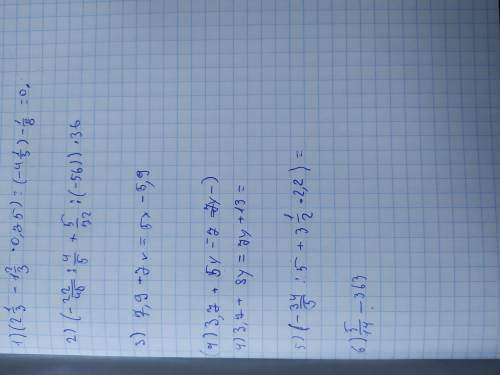 1) (2 1/3 - 1 2/3 · 0,25) : (-4 1/3) - 1/8 = 0,
2) (- 22/45 : 4/5 + 5/72 : (-56)) · 36
3) 7,9 + 7x = 5x - 5,9
(4) 3,7 + 5y - 7 = 7y -)
4) 3,7 + 8y = 7y + 13 =
5) (- 34/3 : 5 + 3 1/2 · 2,2) =
6) 5/14 - 363